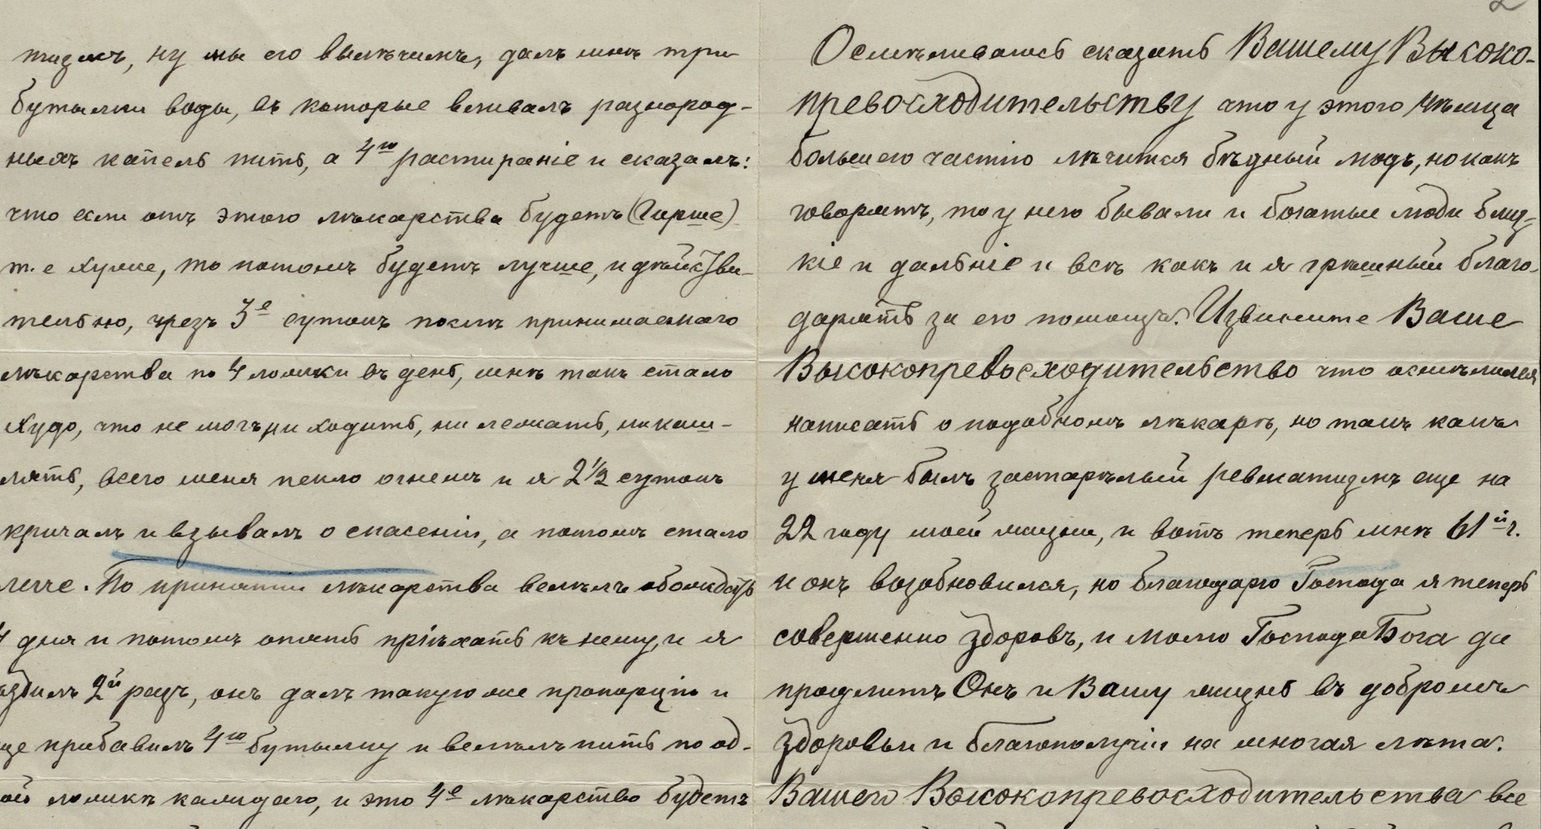 тизмъ, ну мы его вылѣчимъ, далъ мнѣ три
бутылки воды, въ которые вливалъ разнород-
ныхъ капель пить, а 4ю растираніе и сказалъ:
что если отъ этого лѣкарства будетъ (Гирше)
т.е хуже, то потомъ будетъ лучше, и дѣйстви-
тельно, чрезъ 3е сутокъ послѣ принимаемаго
лѣкарства по 4 ложки въ день, мнѣ такъ стало
худо, что не могъ ни ходить, ни лежать, ни каш-
лять, всего меня пекло огнемъ и я 2½ сутокъ
кричалъ и взывалъ о спасеніи, а потомъ стало
легче. По принятіи лѣкарства велѣлъ обождать
4 дня и потомъ опять пріѣхать къ нему, и я
ѣздилъ 2й разъ, онъ далъ такую же пропорцію и
ще прибавилъ 4ю бутылку и велѣлъ пить по од-
ой ложкѣ каждаго, и это 4е лѣкарство будетъ
2
Осмѣливаюсь сказать Вашему Высоко-
превосходительству что у этого Нѣмца
большею частію лѣчится бѣдный людъ, но какъ
говорятъ, то у него бывали и богатые люди близ-
кіе и дальніе и всѣ какъ и я грѣшный благо-
дарятъ за его помощь. Извините Ваше
Высокопревосходительство что осмѣлился
написать о подобномъ лѣкарѣ, но такъ какъ
у меня былъ застарѣлый ревматизмъ еще на
22 году моей жизни, и вотъ теперь мнѣ 61й г.
и онъ возобновился, но благодарю Господа я теперь
совершенно здоровъ, и молю Господа Бога да
продлитъ Онъ и Вашу жизнь въ добромъ
здоровьи и благополучіи на многая лѣта.
Вашего Высокопревосходительства все